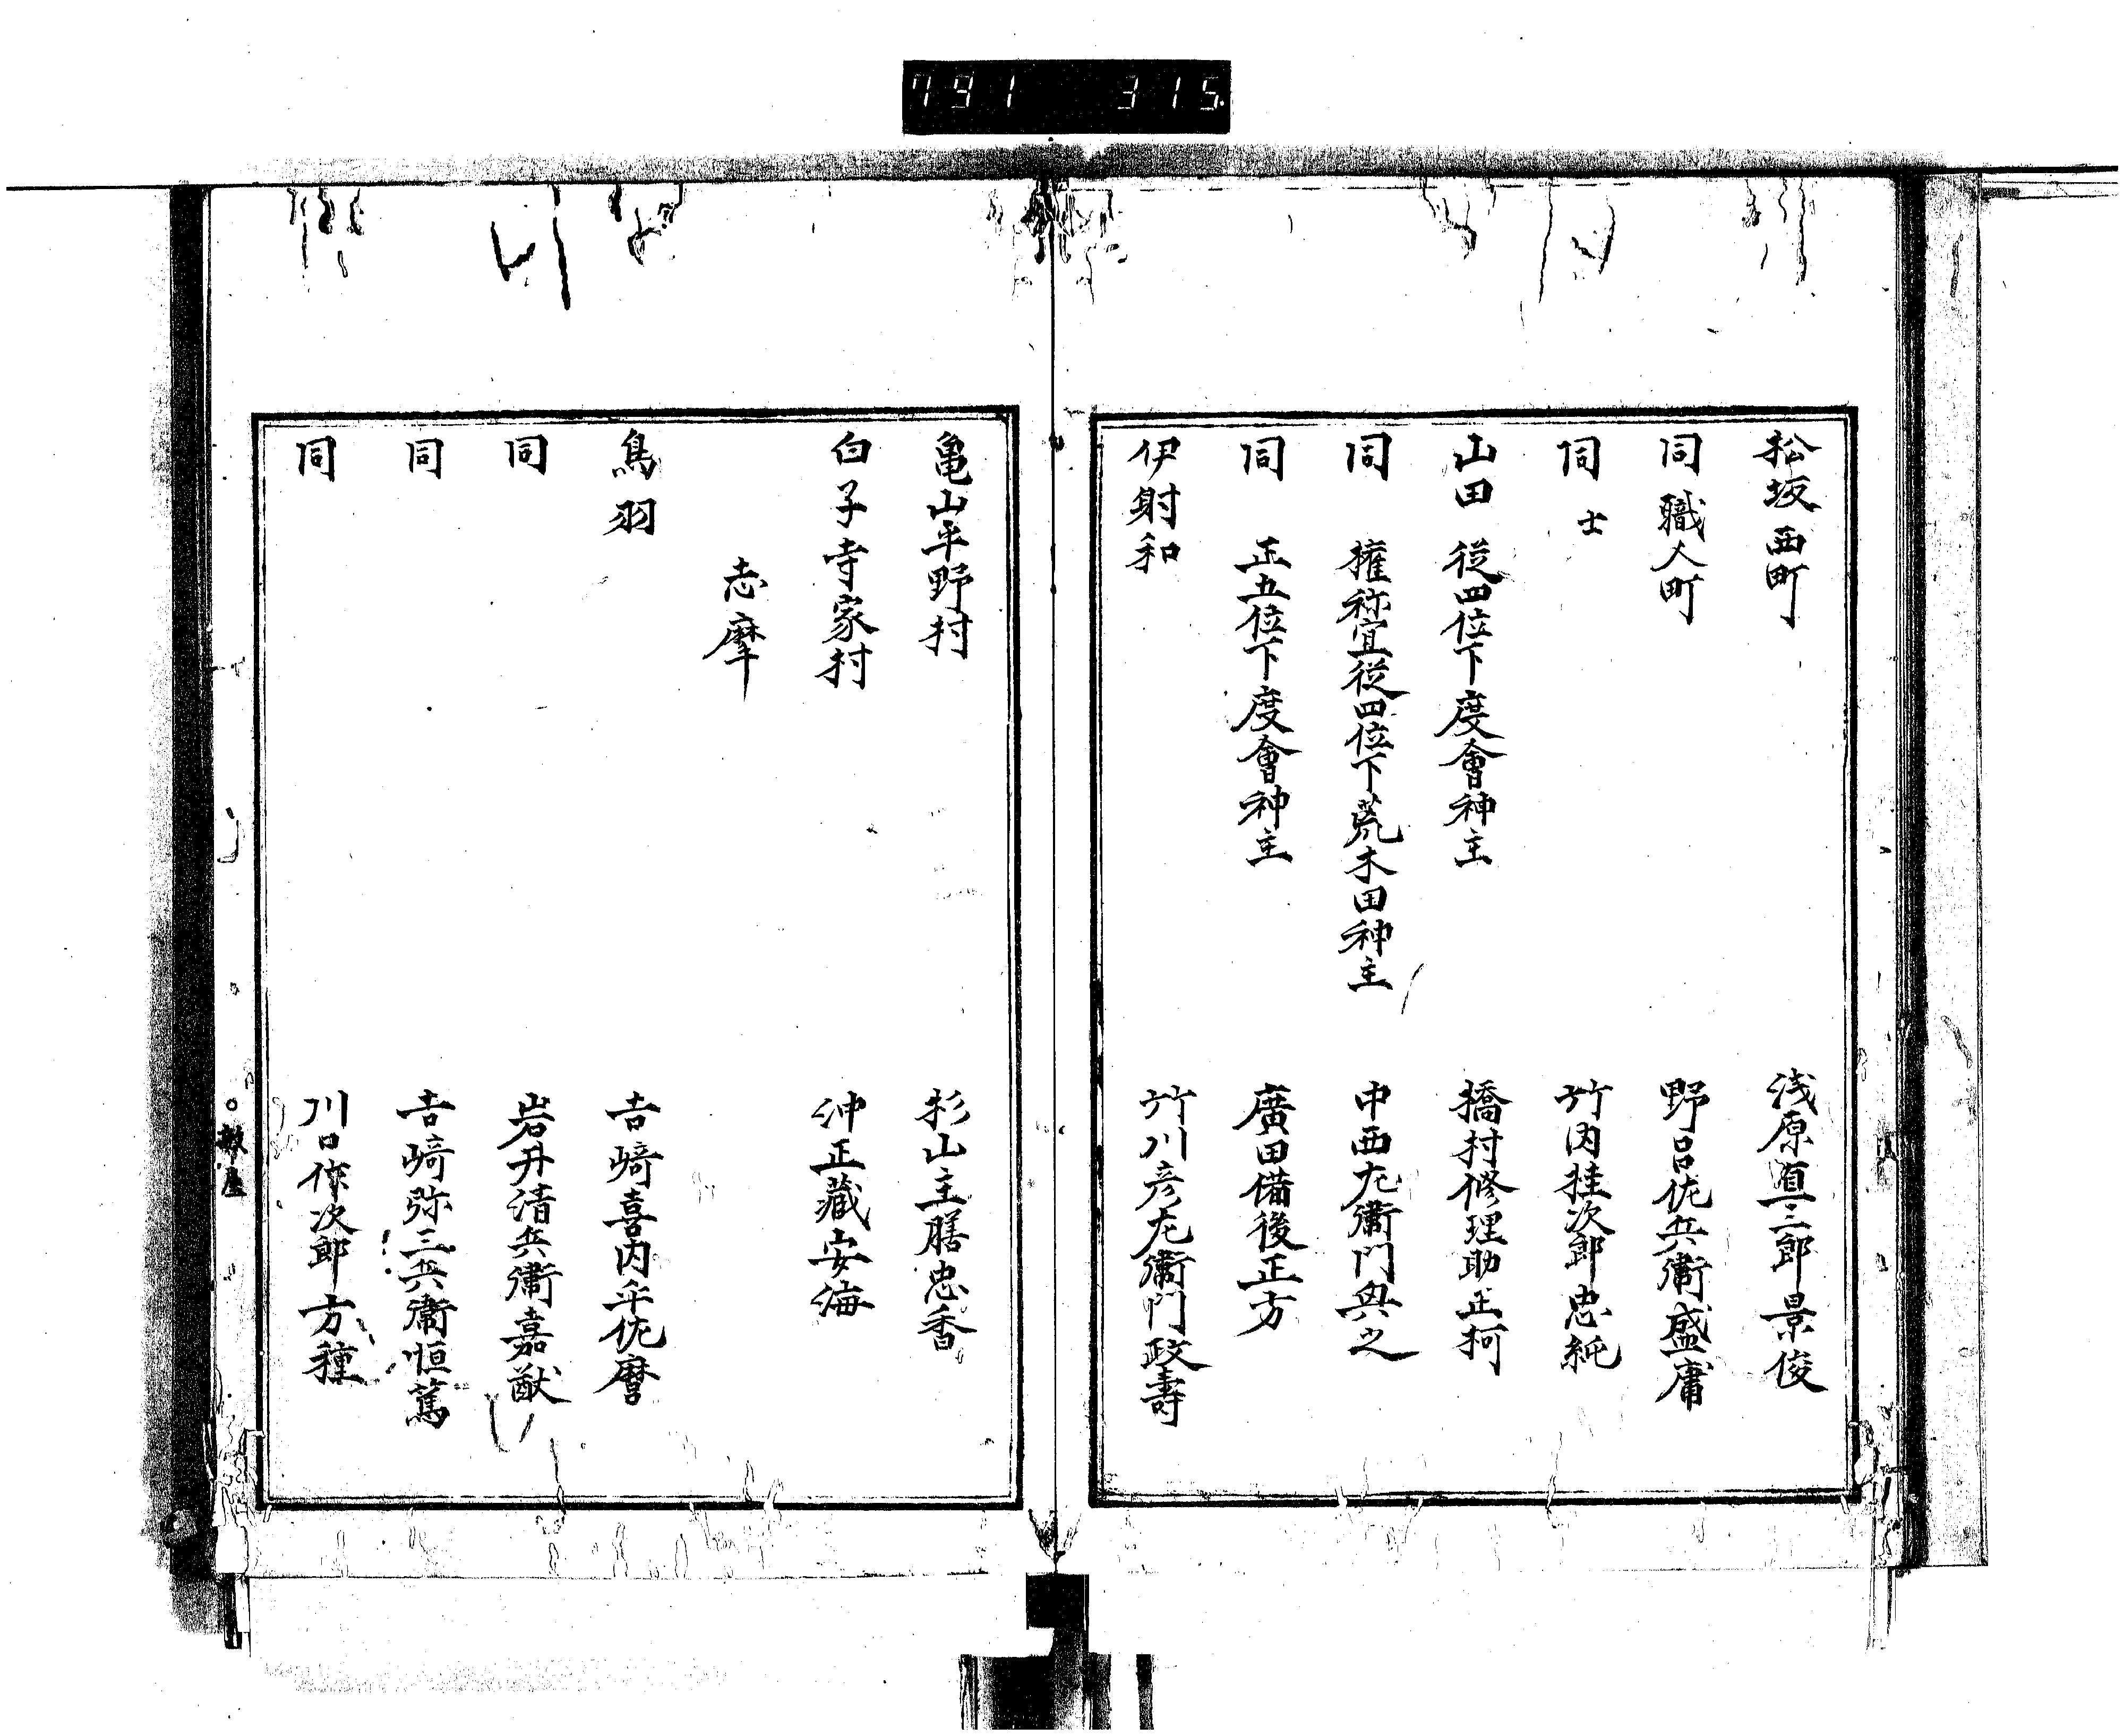 791 315
松坂西町 浅原直三郎景俊
同職人町 野呂佐兵衞盛庸
同士 竹内桂次郎忠純
山田 従四位下度會神主 橋村修理助正柯
同 權祢宜従四位下荒木田神主 中西左衞門典之
同 正五位下度會神主 廣田備後正方
伊射和 竹川彦左衞門政壽
亀山平野村 杉山主膳忠香
白子寺家村 沖正藏安海
志摩
鳥羽 吉﨑喜内平佐麿
同 岩井清兵衞嘉猷
同 吉﨑弥三兵衞恒篤
同 川口作次郎方種